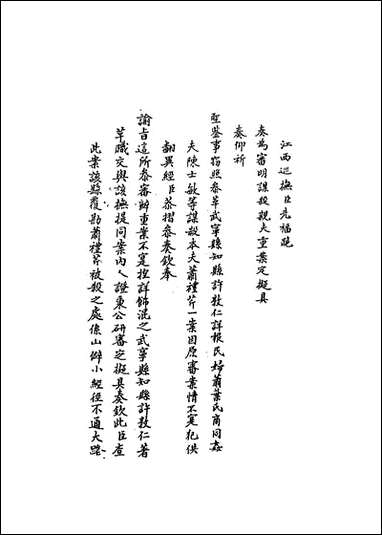 江西巡撫臣先福跪
奏為審明謀殺親夫重案定擬具
奏仰祈
聖鑒事竊照叅革武寧縣知縣許敦仁詳報民婦蕭葉氏商同姦
夫陳士敏等謀殺本夫蕭禮芹一案因原審案情不實犯供
翻異經臣恭摺叅奏欽奉
諭旨這所叅審辦重案不實捏詳飾混之武寧縣知縣許敦仁著
革職交與該撫提同案內人證秉公研審定擬具奏欽此臣查
此案該縣覆勘蕭禮芹被殺之處係山僻小經徑不通大路